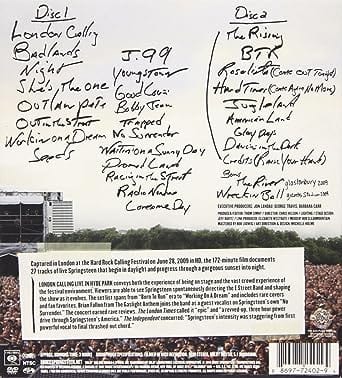 Disc 1
London Calling
Badlands
Night
She's The One
Outlaw Pete
Out in the Street
Workin on a Dream
Seeds
J. 99
Youngstown
Good Lovin
Bobby Jean
Trapped
No Surrender
Waitin on a Sunny Day
Promised Land
Racing in the Street
Radio Nowhere
Lonesome Day
Disc 2
The Rising
BTR
Rosalita (Come Out Tonight)
Hard Times (Come Again No More)
Jungleland
American Land
Glory Days
Dancing in the Dark
Credits (Raise Your Hand)
The River Glastonbury 2009
Wreckin Ball Giants Stadium
EXECUTIVE PRODUCERS: JON LANDAU, GEORGE TRAVIS, BARBARA CARR
Captured in London at the Hard Rock Calling Festival on June 28, 2009 in HD, the 172-minute film documents
27 tracks of live Springsteen that begin in daylight and progress through a gorgeous sunset into night.
LONDON CALLING: LIVE IN HYDE PARK conveys both the experience of being on stage and the vast crowd experience of
the festival environment. Viewers are able to see Springsteen spontaneously directing the E Street Band and shaping
the show as it evolves. The set list spans from "Born To Run" era to "Working On A Dream" and includes rare covers
and fan favorites. Brian Fallon from The Gaslight Anthem joins the band as a guest vocalist on Springsteen's own "No
Surrender." The concert earned rave reviews. The London Times called it "epic" and "a revved-up, three hour power
drive through Springsteen's America." The Independent concurred: "Springsteen's intensity was staggering from first
powerful vocal to final thrashed-out chord."
NTSC
DVD
8 8697-72402-9